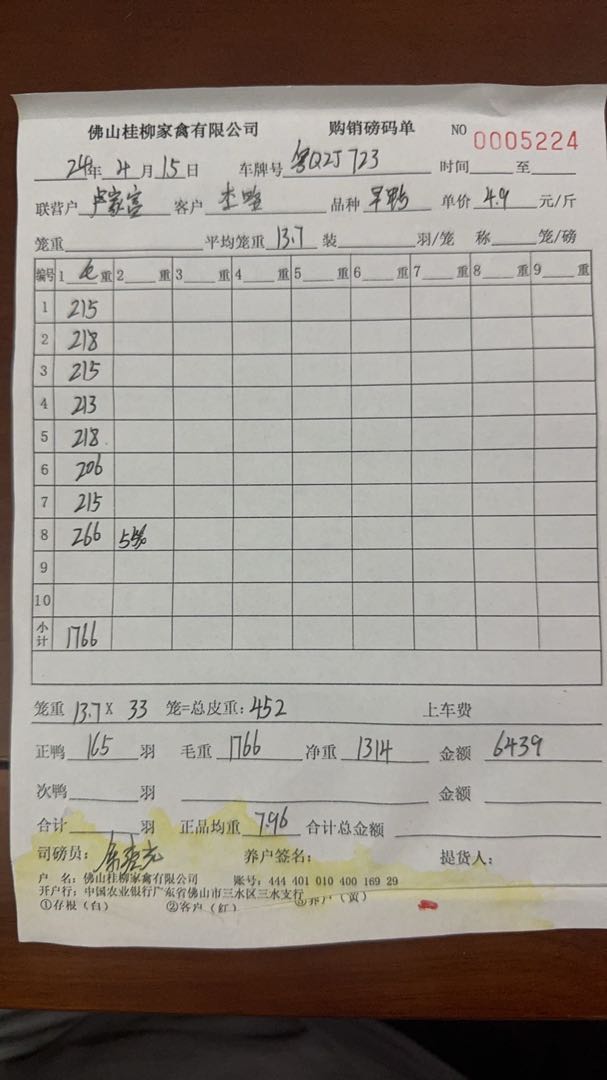 佛山桂柳家禽有限公司 购销磅码单 NO 0005224
24年 4月15日 车牌号 粤Q2J723 时间 至
联营户 卢家富 客户 品种 单价 4.9 元/斤
笼重 平均笼重 13.7 装 羽/笼 称 笼/磅
编号 1 毛 重 2 重 3 重 4 重 5 重 6 重 7 重 8 重 9 重
1 215
2 218
3 215
4 213
5 218
6 206
7 215
8 266
9
10
小计 1766
笼重 13.7 X 33 笼=总皮重: 452 上车费
正鸭 165 羽 毛重 1766 净重 1314 金额 6439
次鸭 羽 金额
合计 羽 正品均重 7.96 合计总金额
司磅员: 养户签名: 提货人:
户 名: 佛山桂柳家禽有限公司 账号: 444 401 010 400 169 29
开户行: 中国农业银行广东省佛山市三水区三水支行
①存根(白) ②客户(红) ③养户(黄)